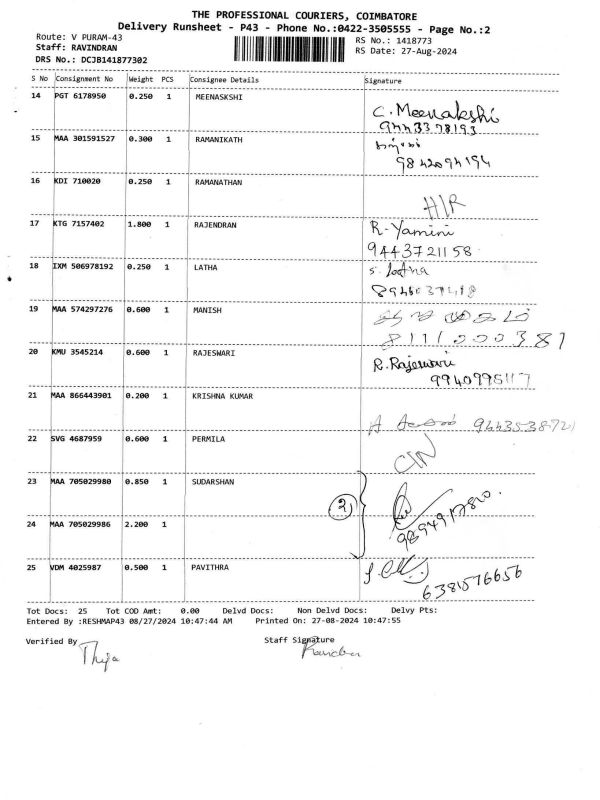 THE PROFESSIONAL COURIERS, COIMBATORE
Delivery Runsheet - P43 - Phone No.:0422-3505555 - Page No.:2
Route: V PURAM-43 RS No.: 1418773
Staff: RAVINDRAN RS Date: 27-Aug-2024
DRS No.: DCJB141877302
S No Consignment No Weight PCS Consignee Details Signature
14 PGT 6178950 0.250 1 MEENASKSHI
C. Meenakshi
9443378193
15 MAA 301591527 0.300 1 RAMANIKATH
9842094194
16 KDI 710020 0.250 1 RAMANATHAN
H/R
17 KTG 7157402 1.800 1 RAJENDRAN R. Yamini
9443721158
18 IXM 506978192 0.250 1 LATHA S. Latha
19 MAA 574297276 0.600 1 MANISH
8111000381
20 KMU 3545214 0.600 1 RAJESWARI R. Rajeswari
21 MAA 866443901 0.200 1 KRISHNA KUMAR
22 SVG 4687959 0.600 1 PERMILA
C/N
23 MAA 705029980 0.850 1 SUDARSHAN
2
24 MAA 705029986 2.200 1
25 VDM 4025987 0.500 1 PAVITHRA
6381576656
Tot Docs: 25 Tot COD Amt: 0.00 Delvd Docs: Non Delvd Docs: Delvy Pts:
Entered By :RESHMAP43 08/27/2024 10:47:44 AM Printed On: 27-08-2024 10:47:55
Verified By Staff Signature